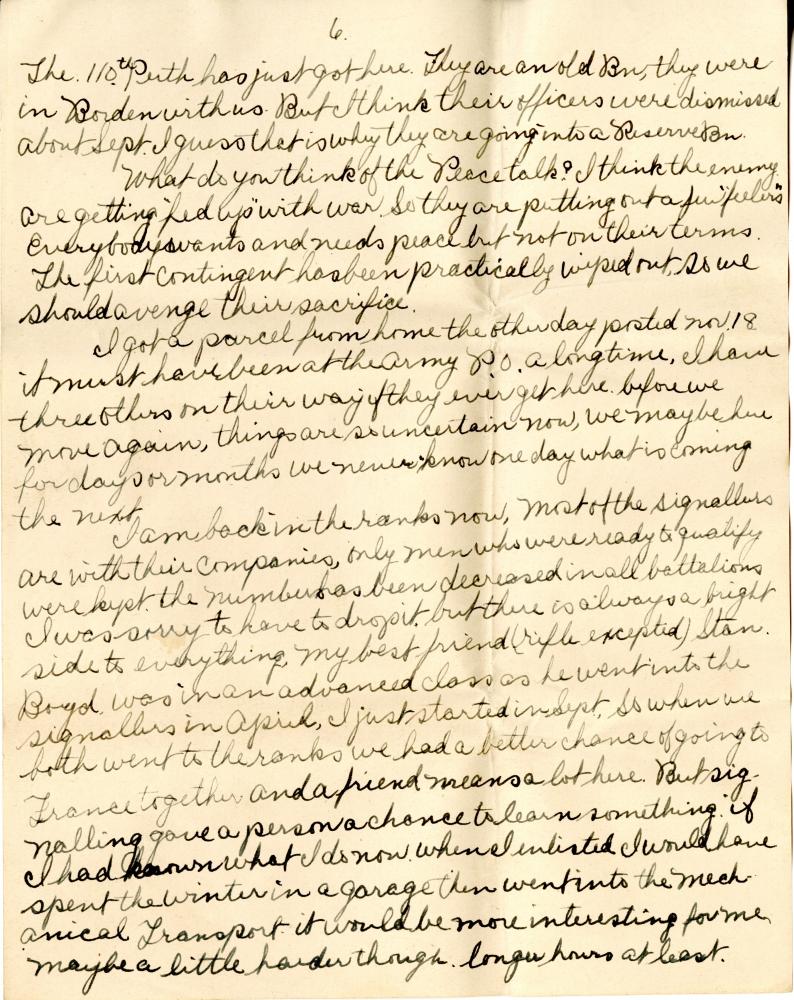 6.
The. 110th Perth has just got here. They are an old Bn, they were
in Borden with us. But I think their officers were dismissed
about Sept. I guess that is why they are going into a Reserve Bn.
What do you think of the Peace talk? I think the enemy
are getting "fed up" with war. So they are putting out a few "feelers"
Everybody wants and needs peace but not on their terms.
The first contingent has been practically wiped out, so we
should avenge their sacrifice.
I got a parcel from home the other day posted Nov. 18
it must have been at the Army P.O. a long time, I have
three others on their way if they ever get here. before we
move again, things are so uncertain now, we may be here
for days or months we never know one day what is coming
the next.
I am back in the ranks now, Most of the signallers
are with their companies, only men who were ready to qualify
were kept. the number has been decreased in all battalions
I was sorry to have to drop it. but there is always a bright
side to everything, my best friend (rifle excepted) Stan.
Boyd. was in an advanced class as he went into the
signallers in April, I just started in Sept. So when we
both went to the ranks we had a better chance of going to
France together and a friend means a lot here. But sig-
nalling gave a person a chance to learn something. if
I had known what I do now. when I enlisted I would have
spent the winter in a garage then went into the Mech-
anical Transport it would be more interesting for me,
maybe a little harder though. longer hours at least.